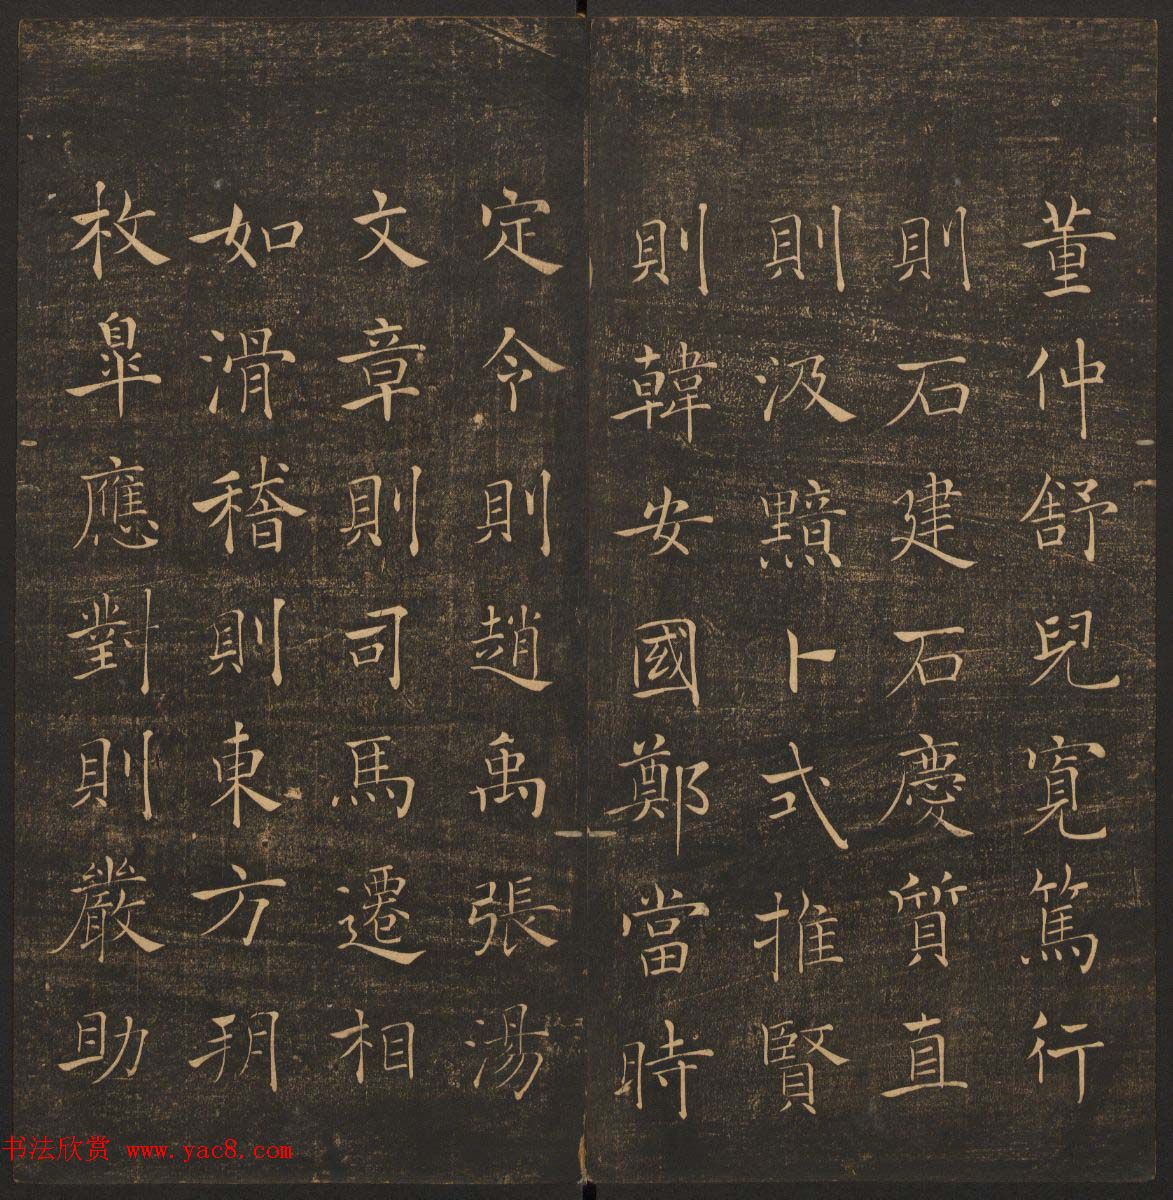 董仲舒兒寛篤行
則石建石慶質直
則汲黯卜式推賢
則韓安國鄭當時
定令則趙禹張湯
文章則司馬遷相
如滑稽則東方朔
枚皐應對則嚴助
书法欣赏 www.yac8.com